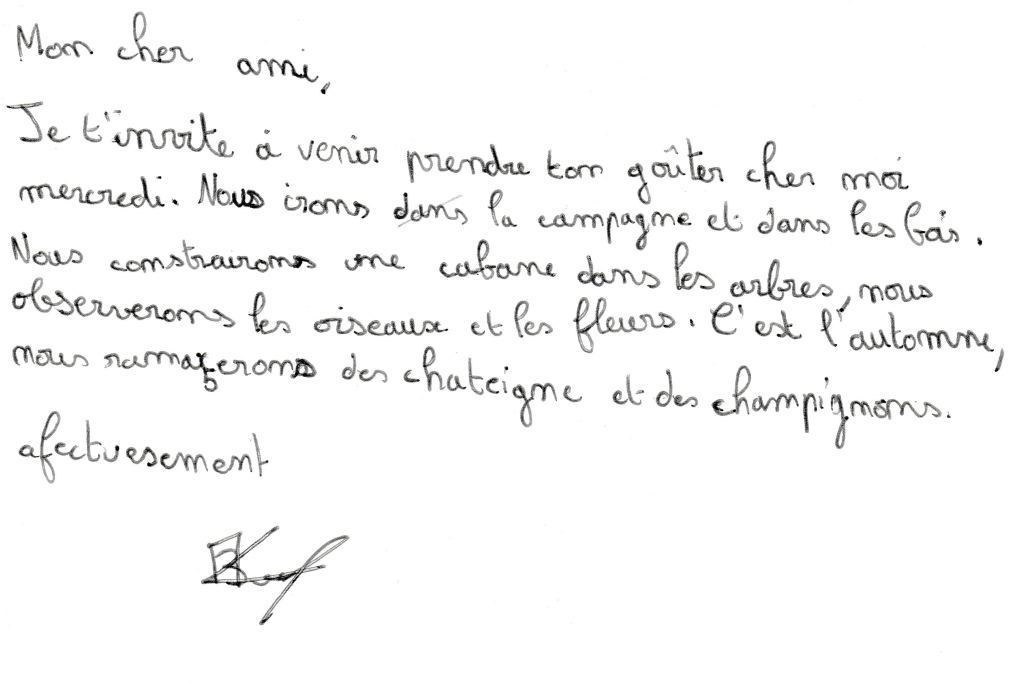 Mon cher ami,
Je t'invite à venir prendre ton goûter cher moi
mercredi. Nous irons dans la campagne et dans les bois.
Nous constrairons une cabane dans les arbres, nous
observerons les oiseaux et les fleurs. C'est l'automne,
nous ramasserons des chateigne et des champignons.
afectuesement